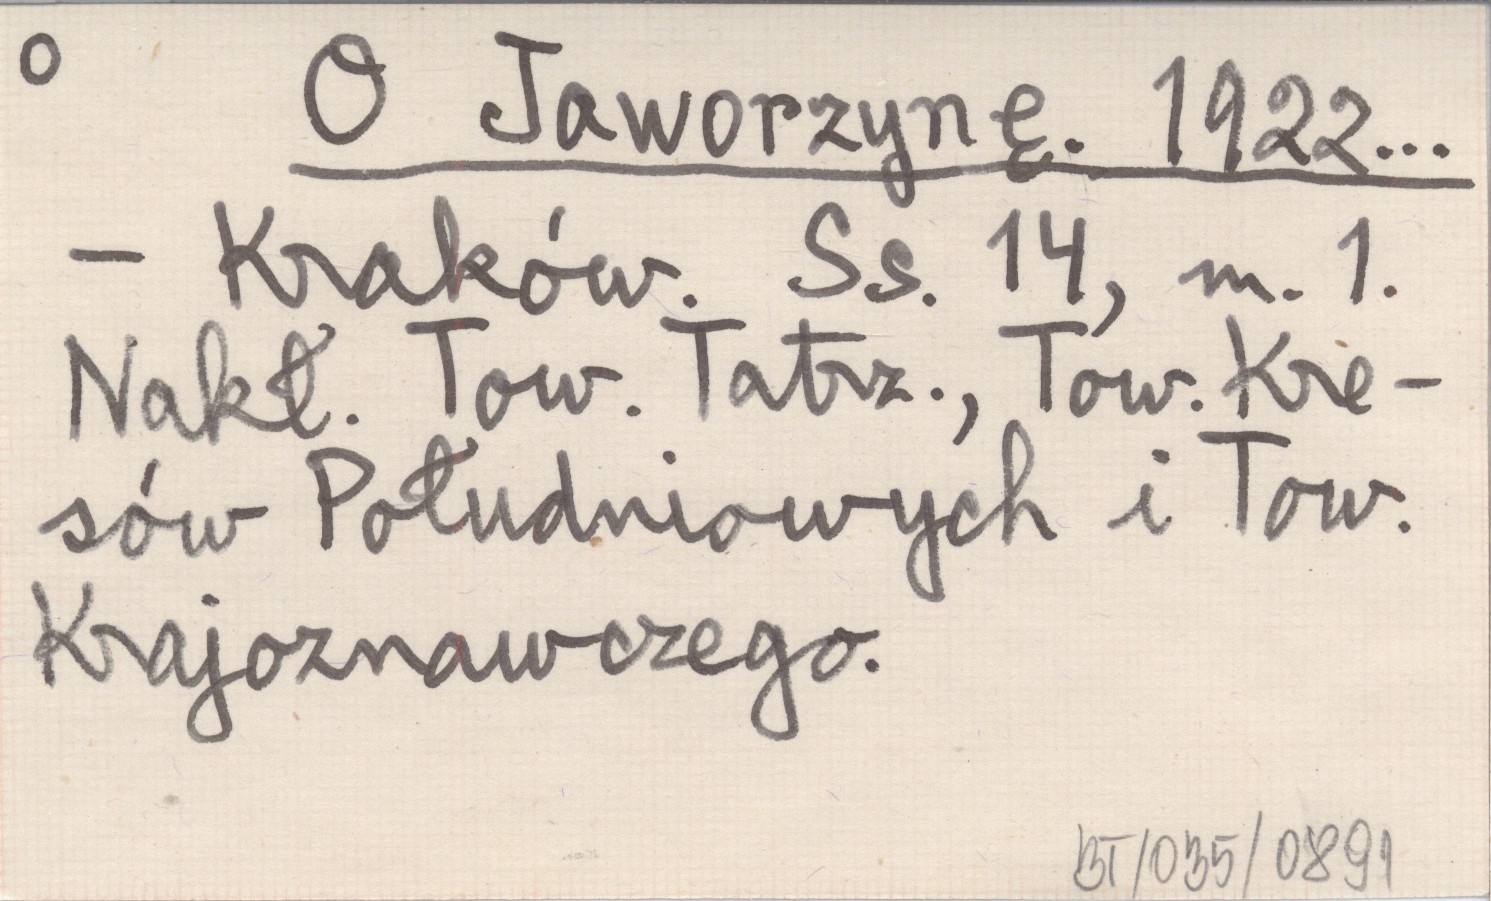 o O Jaworzynę. 1922...
- Kraków. Ss. 14, m. 1.
Nakł. Tow. Tatrz., Tow. Kre-
sów Południowych i Tow.
Krajoznawczego.
BT/035/0891